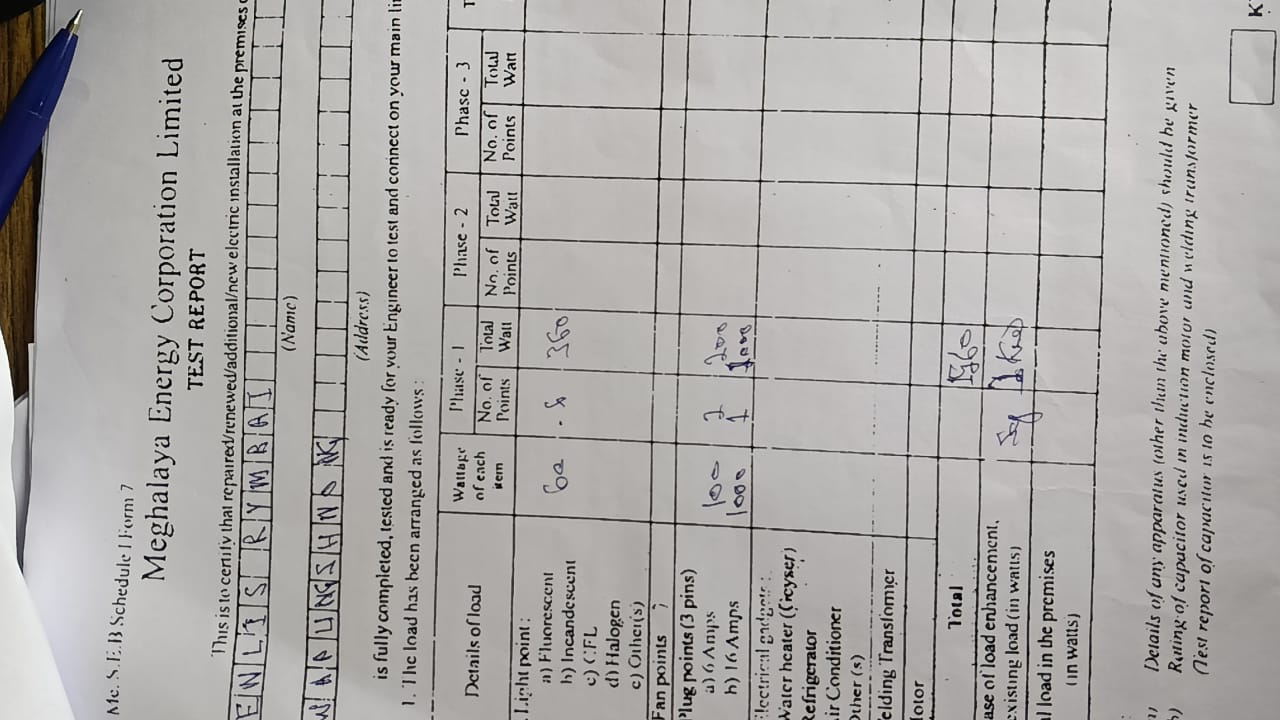 Me. S. E.B Schedule I Form 7
Meghalaya Energy Corporation Limited
TEST REPORT
This is to certify that repaired/renewed/additional/new electric installation at the premises
ENLIS RYMBAI
(Name)
(Address)
is fully completed, tested and is ready for your Engineer to test and connect on your main
1. The load has been arranged as follows :
Details of load Wattage of each item Phase - 1 Phase - 2 Phase - 3
No. of Points Total Watt No. of Points Total Watt No. of Points Total Watt
Light point :
a) Fluorescent 60 360
b) Incandescent
c) CFL
d) Halogen
e) Other(s)
Fan points
Plug points (3 pins)
a) 6 Amps 100 2 200
b) 16 Amps 1000 1 1000
Electrical gadgets :
Water heater (Geyser)
Refrigerator
Air Conditioner
Other (s)
Welding Transformer
Motor
Total 1560
ase of load enhancement,
existing load (in watts)
l load in the premises
(in watts)
Details of any apparatus (other than the above mentioned) should be given
Rating of capacitor used in induction motor and welding transformer
(Test report of capacitor is to be enclosed)